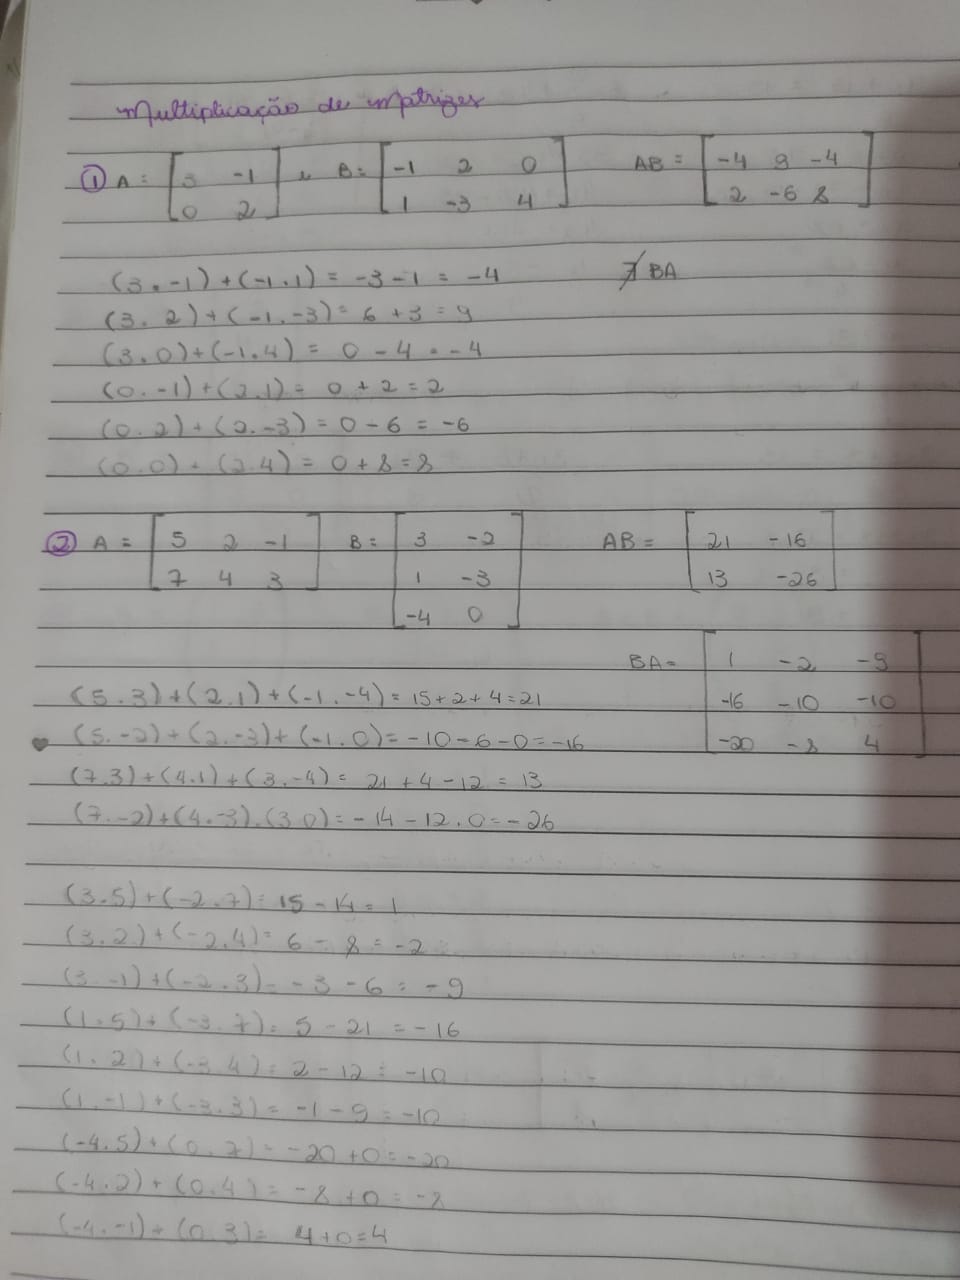 Multiplicação de Matrizes
① A = [3 -1 e B = [-1 2 0 AB = [-4 9 -4
0 2] 1 -3 4] 2 -6 8]
(3.-1)+(-1.1) = -3-1 = -4 ∄ BA
(3.2)+(-1.-3)= 6+3=9
(3.0)+(-1.4) = 0-4 = -4
(0.-1)+(2.1)= 0+2=2
(0.2)+(2.-3)=0-6=-6
(0.0)+(2.4)= 0+8=8
② A = [5 2 -1 B = [3 -2 AB = [21 -16
7 4 3] 1 -3 13 -26]
-4 0]
BA= [1 -2 -9
(5.3)+(2.1)+(-1.-4)=15+2+4=21 -16 -10 -10
(5.-2)+(2.-3)+(-1.0)=-10-6-0=-16 -20 -8 4]
(7.3)+(4.1)+(3.-4)= 21+4-12=13
(7.-2)+(4.-3).(3.0)=-14-12.0=-26
(3.5)+(-2.7)=15-14=1
(3.2)+(-2.4)=6-8=-2
(3.-1)+(-2.3)=-3-6=-9
(1.5)+(-3.7)=5-21=-16
(1.2)+(-3.4)=2-12=-10
(1.-1)+(-3.3)=-1-9=-10
(-4.5)+(0.7)=-20+0=-20
(-4.2)+(0.4)=-8+0=-8
(-4.-1)+(0.3)= 4+0=4